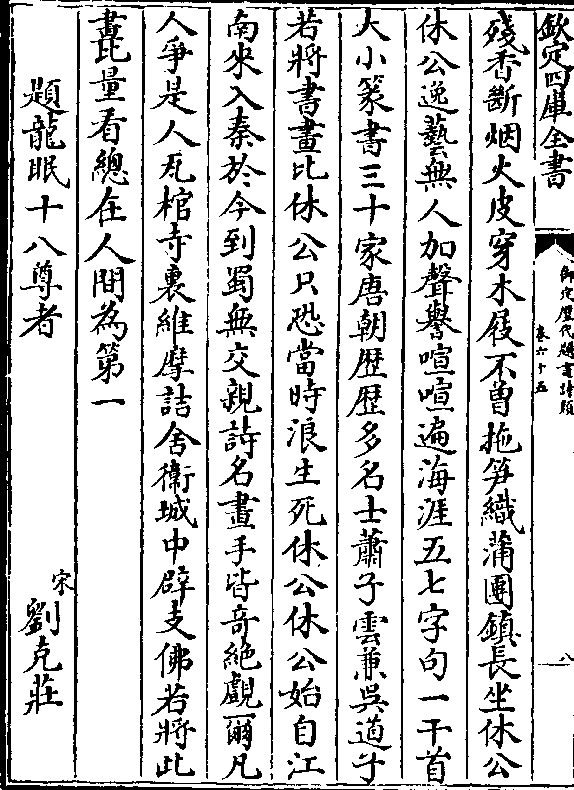 欽定四庫全書
御定歷代題畫詩類
卷六十五
八
殘香斷烟火皮穿木屐不曾拖笋織蒲團鎮長坐休公
休公逸藝無人加聲譽喧喧遍海涯五七字句一千首
大小篆書三十家唐朝歴歴多名士蕭子雲兼吳道子
若將書畫比休公只恐當時浪生死休公休公始自江
南來入秦於今到蜀無交親詩名畫手皆奇絶覷爾凡
人爭是人瓦棺寺裏維摩詰舍衛城中辟支佛若將此
畫比量看總在人間為第一
題龍眠十八尊者
宋
劉克莊